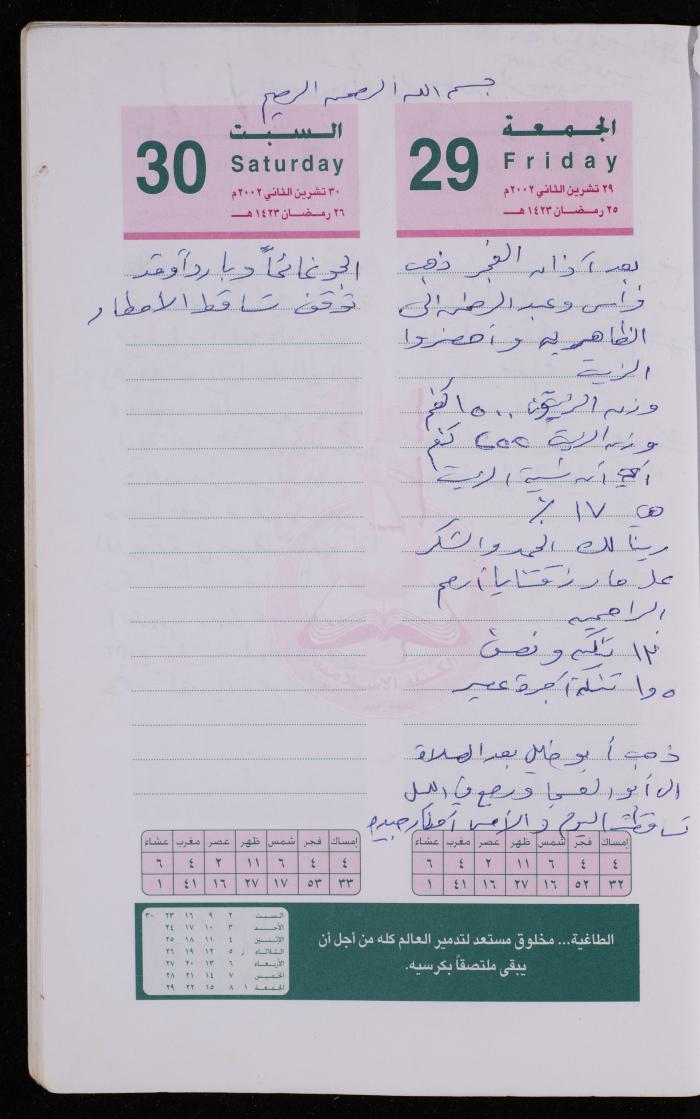 بسم الله الرحمن الرحيم
الجمعة
29
Friday
٢٩ تشرين الثاني ٢٠٠٢م
٢٥ رمضان ١٤٢٣ هـ
بعد آذان الفجر ذهب
فراس وعبد الرحمن الى
الظاهرية و احضروا
الزيت
وزن الزيتون ١٥٠٠ كغم
وزن الزيت ٢٥٥ كغم
أي أن نسبة الزيت
هي ١٧ %
ربنا لك الحمد والشكر
على ما رزقتنا يا أرحم
الراحمين
تنكة ونصف
تنكة أجرة عصر
ذهب أبو خليل بعد الصلاة
الى أبو العسجا ورجع في الليل
تساقطت اليوم والأمس أمطار جيدة
السبت
30
Saturday
٣٠ تشرين الثاني ٢٠٠٢م
٢٦ رمضان ١٤٢٣ هـ
الجو غائماً وبارداً وقد
توقف تساقط الأمطار
إمساك فجر شمس ظهر عصر مغرب عشاء
٤ ٤ ٦ ١١ ٢ ٤ ٦
٣٢ ٥٢ ١٦ ٢٧ ١٦ ٤١ ١
إمساك فجر شمس ظهر عصر مغرب عشاء
٤ ٤ ٦ ١١ ٢ ٤ ٦
٣٣ ٥٣ ١٧ ٢٧ ١٦ ٤١ ١
الطاغية... مخلوق مستعد لتدمير العالم كله من أجل أن
يبقى ملتصقاً بكرسيه.
السبت ٢ ٩ ١٦ ٢٣ ٣٠
الأحد ٣ ١٠ ١٧ ٢٤
الإثنين ٤ ١١ ١٨ ٢٥
الثلاثاء ٥ ١٢ ١٩ ٢٦
الأربعاء ٦ ١٣ ٢٠ ٢٧
الخميس ٧ ١٤ ٢١ ٢٨
الجمعة ١ ٨ ١٥ ٢٢ ٢٩
الكتلة الإسلامية